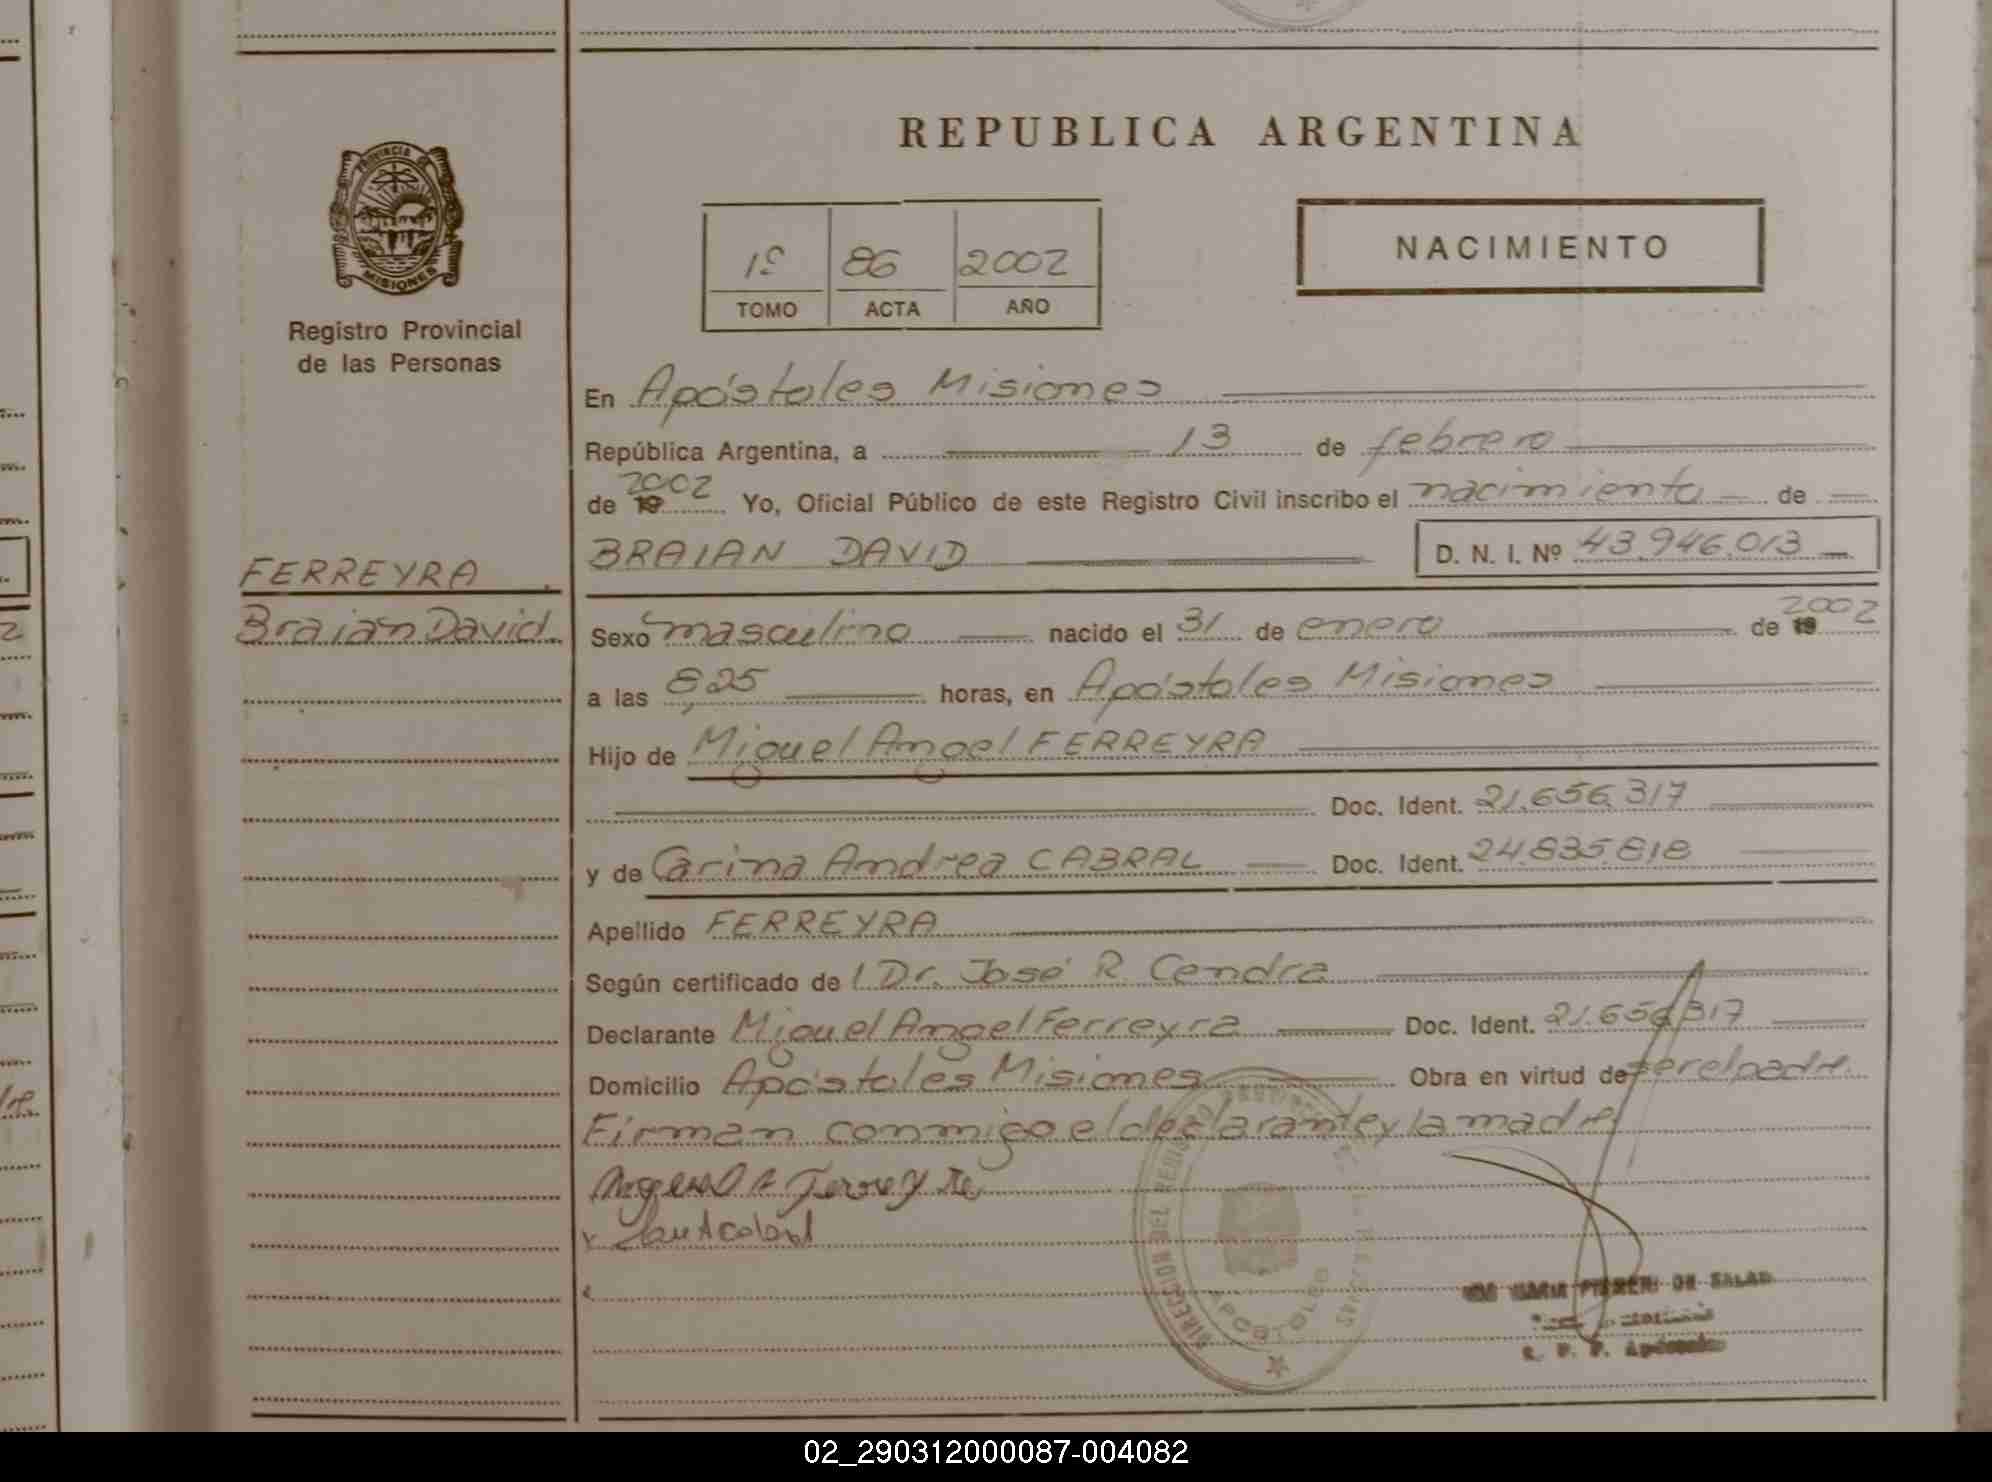 REPUBLICA ARGENTINA
PROVINCIA DE
MISIONES
Registro Provincial
de las Personas
NACIMIENTO
1º 86 2002
TOMO ACTA AÑO
En Apóstoles Misiones
República Argentina, a 13 de febrero
de 19 2002 Yo, Oficial Público de este Registro Civil inscribo el nacimiento de
BRAIAN DAVID D. N. I. Nº 43.946.013
FERREYRA
Braian David
Sexo masculino nacido el 31 de enero de 19 2002
a las 8,25 horas, en Apóstoles Misiones
Hijo de Miguel Angel FERREYRA
Doc. Ident. 21.656.317
y de Carina Andrea CABRAL Doc. Ident. 24.835.818
Apellido FERREYRA
Según certificado de Dr. José R. Cendra
Declarante Miguel Angel Ferreyra Doc. Ident. 21.656.317
Domicilio Apóstoles Misiones Obra en virtud de ser el padre.
Firman conmigo el declarante y la madre
DIRECCION DEL REGISTRO PROVINCIAL DE LAS PERSONAS
APOSTOLES
DE SALAS
R. P. P. Apóstoles
02_290312000087-004082